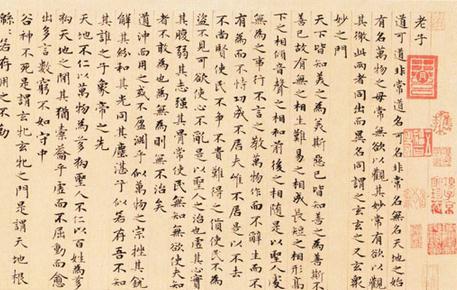 老子
道可道非常道名可名非常名無名天地之始
有名萬物之母常無欲以觀其妙常有欲以觀
其徼此兩者同出而異名同謂之玄玄之又玄衆
妙之門
天下皆知美之為美斯惡已皆知善之為善斯不
善已故有無之相生難易之相成長短之相形高
下之相傾音聲之相和前後之相隨是以聖人處
無為之事行不言之教萬物作而不辭生而不
有為而不恃功成不居夫惟不居是以不去
不尚賢使民不爭不貴難得之貨使民不為
盜不見可欲使心不亂是以聖人之治也虛其心實
其腹弱其志強其骨常使民無知無欲使夫知
者不敢為也為無為則無不治矣
道沖而用之或不盈淵乎似萬物之宗挫其銳
解其紛和其光同其塵湛乎似若存吾不知
其誰之子象帝之先
天地不仁以萬物為芻狗聖人不仁以百姓為芻
狗天地之間其猶橐籥乎虛而不屈動而愈
出多言數窮不如守中
谷神不死是謂玄牝玄牝之門是謂天地根
緜〻若存用之不勤